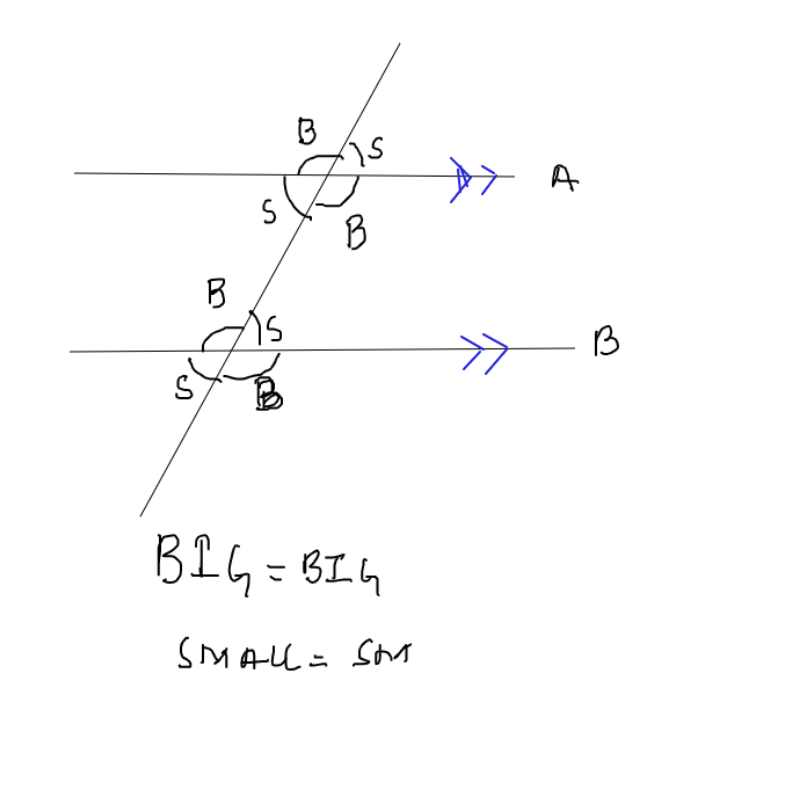 B S
A
S B
B S
B
S B
BIG = BIG
SMALL = SM